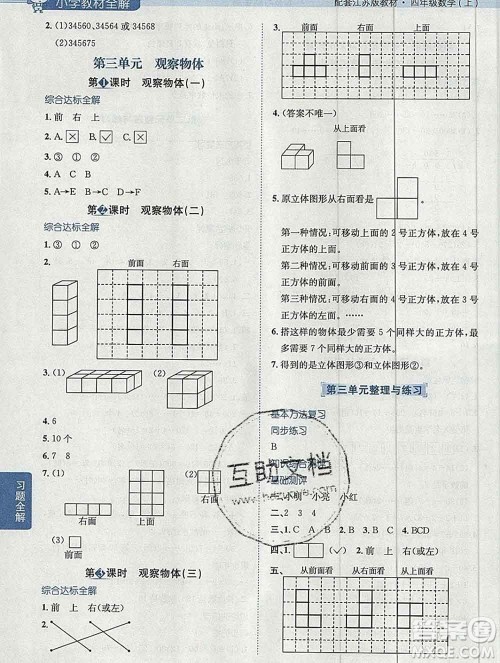 小学教材全解
配套江苏版教材·四年级数学(上)
(1)34560、34565 或 34568
(2)34565
第三单元 观察物体
第1课时 观察物体(一)
综合达标全解
1. 前 右 上
2. A. × B. √ C. ×
3. ③ ① ②
4. ③ ① ②
5. A→E B→F C→D
第2课时 观察物体(二)
综合达标全解
1. ③ ① ②
2.
前面 右面
3.
4. 6
5. 10个
6. 7
7. (1) (2)
右面 前面 右面
(3)
前面
第3课时 观察物体(三)
综合达标全解
1. 前 上 右(或左)
2.
3. 前面 右面 上面
4. (答案不唯一)
从前面看 从上面看
5. 原立体图形从右面看是
第一种情况:可移动上面的 2 号正方体,放在 4 号
正方体的上面。
第二种情况:可移动前面的 1 号正方体,放在 4 号
正方体的上面。
第三种情况:可移动前面的 1 号正方体,放在 6 号
正方体的上面。
6. 搭这样的物体最少需要 5 个同样大的正方体,最
多需要 7 个同样大的正方体。
7. 得到的是立体图形①和立体图形②。
第三单元整理与练习
基本方法复习
同步练习
B
知识综合测评
基础测评
一、小明 小亮 小红
二、2 3 4
三、1. C A B 2. D 3. B 4. BCD
四、1. 2. 前 上 右(或左)
五、
从前面看 从右面看 从上面看
习题全解
互助文档
答案圈
MXQE.COM